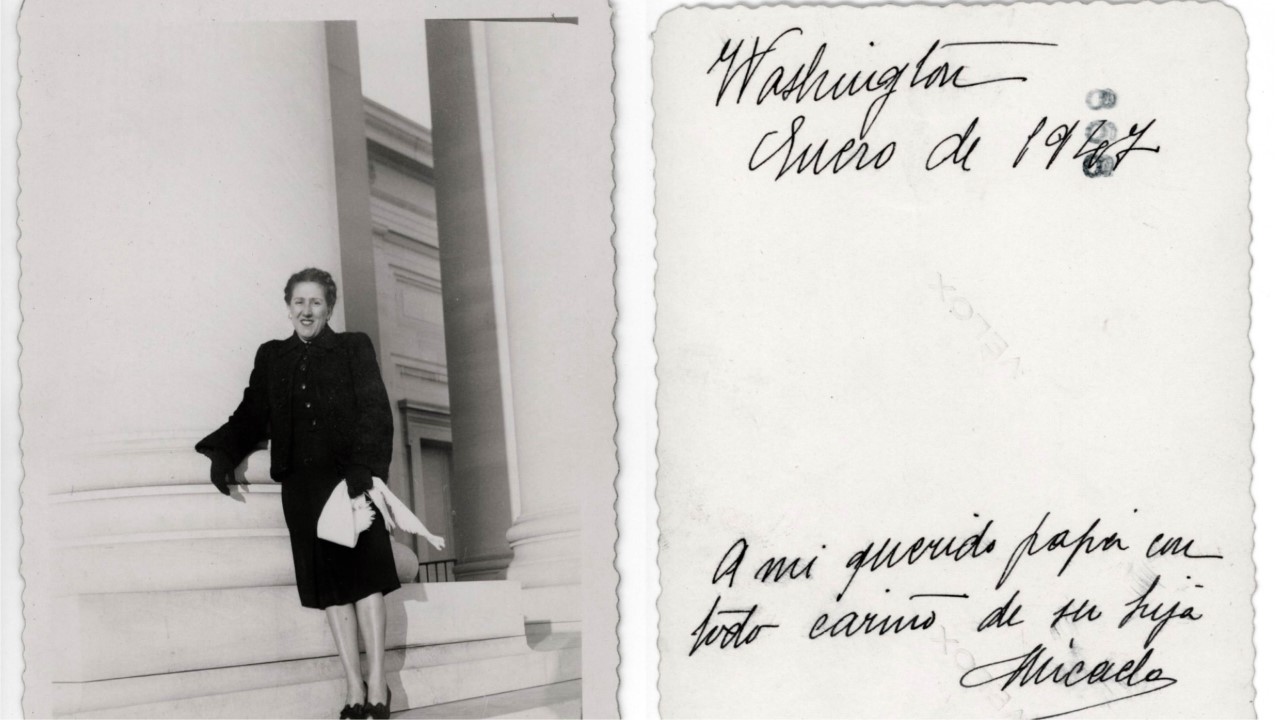 Washington
Enero de 1947
VELOX
A mi querido papá con
todo cariño de su hija
Micaela